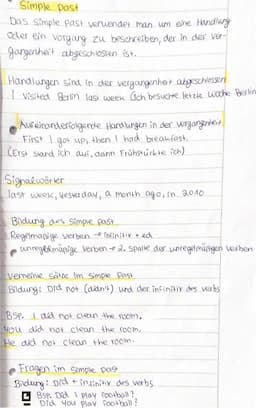 Simple past
Das simple past verwendet man um eine Handlung
oder ein Vorgang zu beschreiben, der in der ver-
gangenheit abgeschlossen ist.
Handlungen sind in der vergangenheit abgeschlossen
I visited Berlin last week (Ich besuchte letzte Woche Berlin
Aufeinanderfolgende Handlungen in der vergangenheit
First I got up, then I had breakfast.
(Erst stand ich auf, dann Frühstückte ich)
Signalwörter
last week, yesterday, a month ago, in 2010
Bildung des simple past
Regelmäßige verben → infinitiv + ed
unregelmäßige verben → 2. spalte der unregelmäßigen verben
Verneinte Sätze im simple Past
Bildung: Did not (didn't) und der infinitiv des verbs
Bsp. I did not clean the room.
You did not clean the room.
He did not clean the room.
Fragen im simple past
Bildung: Did + infinitiv des verbs
Bsp. Did I play football?
Did you play football?